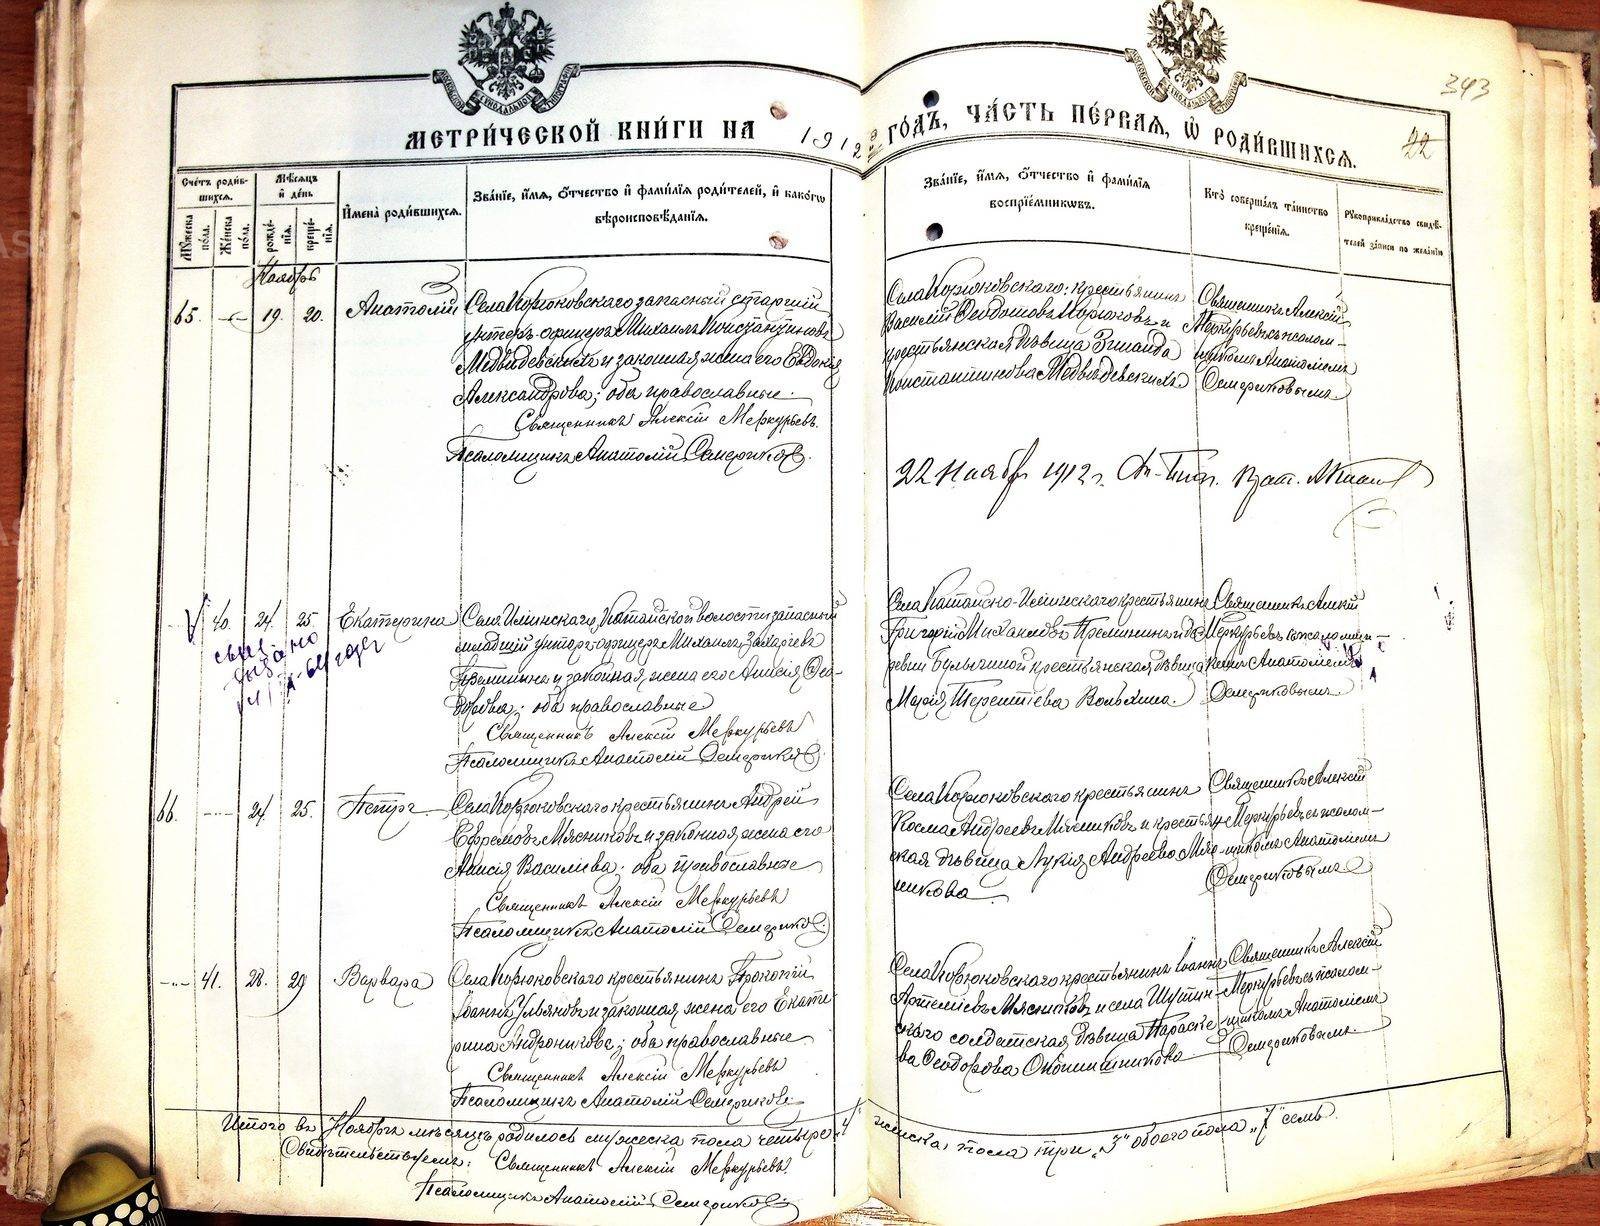 343
МЕТРИ́ЧЕСКОЙ КНИ́ГИ НА 1912 ГО́ДЪ, ЧА́СТЬ ПЕ́РВАЯ, Ѡ РОДИ́ВШИХСЯ.
22
Сче́тъ роди́в-
шихся.
Мѣ́сяцъ
и҆ де́нь
И҆мена̀ роди́вшихся.
Зва́нїе, и҆́мя, ѻ҆́тчество и҆ фами́лїя роди́телей, и҆ како́гѡ
вѣроисповѣ́данїя.
Зва́нїе, и҆́мя, ѻ҆́тчество и҆ фами́лїя
воспрїе́мникѡвъ.
Кто̀ соверша́лъ та́инство
креще́нїя.
Рꙋкоприкла́дство свидѣ́-
телей за́писи по жела́нїю
Мꙋ́жеска
по́ла.
Же́нска
по́ла.
рожде́-
нїя.
креще́-
нїя.
Ноябрь
65. 19. 20. Анатолій
Села Корюковскаго запасный старшій
унтеръ-офицеръ Михаилъ Константиновъ
Медвѣдевскихъ и законная жена его Евдокія
Александрова; оба православные.
Священникъ Алексій Меркурьевъ.
Псаломщикъ Анатолій Семериковъ.
Села Корюковскаго: крестьянинъ
Василій Ѳеодотовъ Корюковъ и
крестьянская дѣвица Зинаида
Константинова Медвѣдевскихъ
Священникъ Алексій
Меркурьевъ съ псалом-
щикомъ Анатоліемъ
Семериковымъ.
22 Ноября 1912 г.
40. 24. 25. Екатерина
Села Ильинскаго, Катайской волости запасный
младшій унтеръ-офицеръ Михаилъ Захаріевъ
и законная жена его Анисія Ѳео-
дорова; оба православные
Священникъ Алексій Меркурьевъ
Псаломщикъ Анатолій Семериковъ.
Села Катайско-Ильинскаго крестьянинъ
Григорій Михаиловъ и де-
ревни Булыгиной крестьянская дѣвица
Марія Терентіева Вольхина.
Священникъ Алексій
Меркурьевъ съ псаломщи-
комъ Анатоліемъ
Семериковымъ.
66. 24. 25. Петръ
Села Корюковскаго крестьянинъ Андрей
Ефремовъ Мясниковъ и законная жена его
Анисія Василіева; оба православные
Священникъ Алексій Меркурьевъ
Псаломщикъ Анатолій Семериковъ.
Села Корюковскаго крестьянинъ
Косма Андреевъ Мясниковъ и крестьян-
ская дѣвица Лукія Андреева Мяс-
никова.
Священникъ Алексій
Меркурьевъ съ псалом-
щикомъ Анатоліемъ
Семериковымъ
41. 28. 29 Варвара
Села Корюковскаго крестьянинъ Прокопій
Іоаннъ Ульяновъ и законная жена его Екате-
рина Андроникова; оба православные
Священникъ Алексій Меркурьевъ
Псаломщикъ Анатолій Семериковъ.
Села Корюковскаго крестьянинъ Іоаннъ
Артеміевъ Мясниковъ и села Шутин-
скаго солдатская дѣвица Параске-
ва Ѳеодорова Оконишникова.
Священникъ Алексій
Меркурьевъ съ псалом-
щикомъ Анатоліемъ
Семериковымъ.
Итого въ Ноябрѣ мѣсяцѣ родилось мужеска пола четыре „4" женска пола три „3" обоего пола „7" семь.
Свидѣтельствуемъ: Священникъ Алексій Меркурьевъ.
Псаломщикъ Анатолій Семериковъ